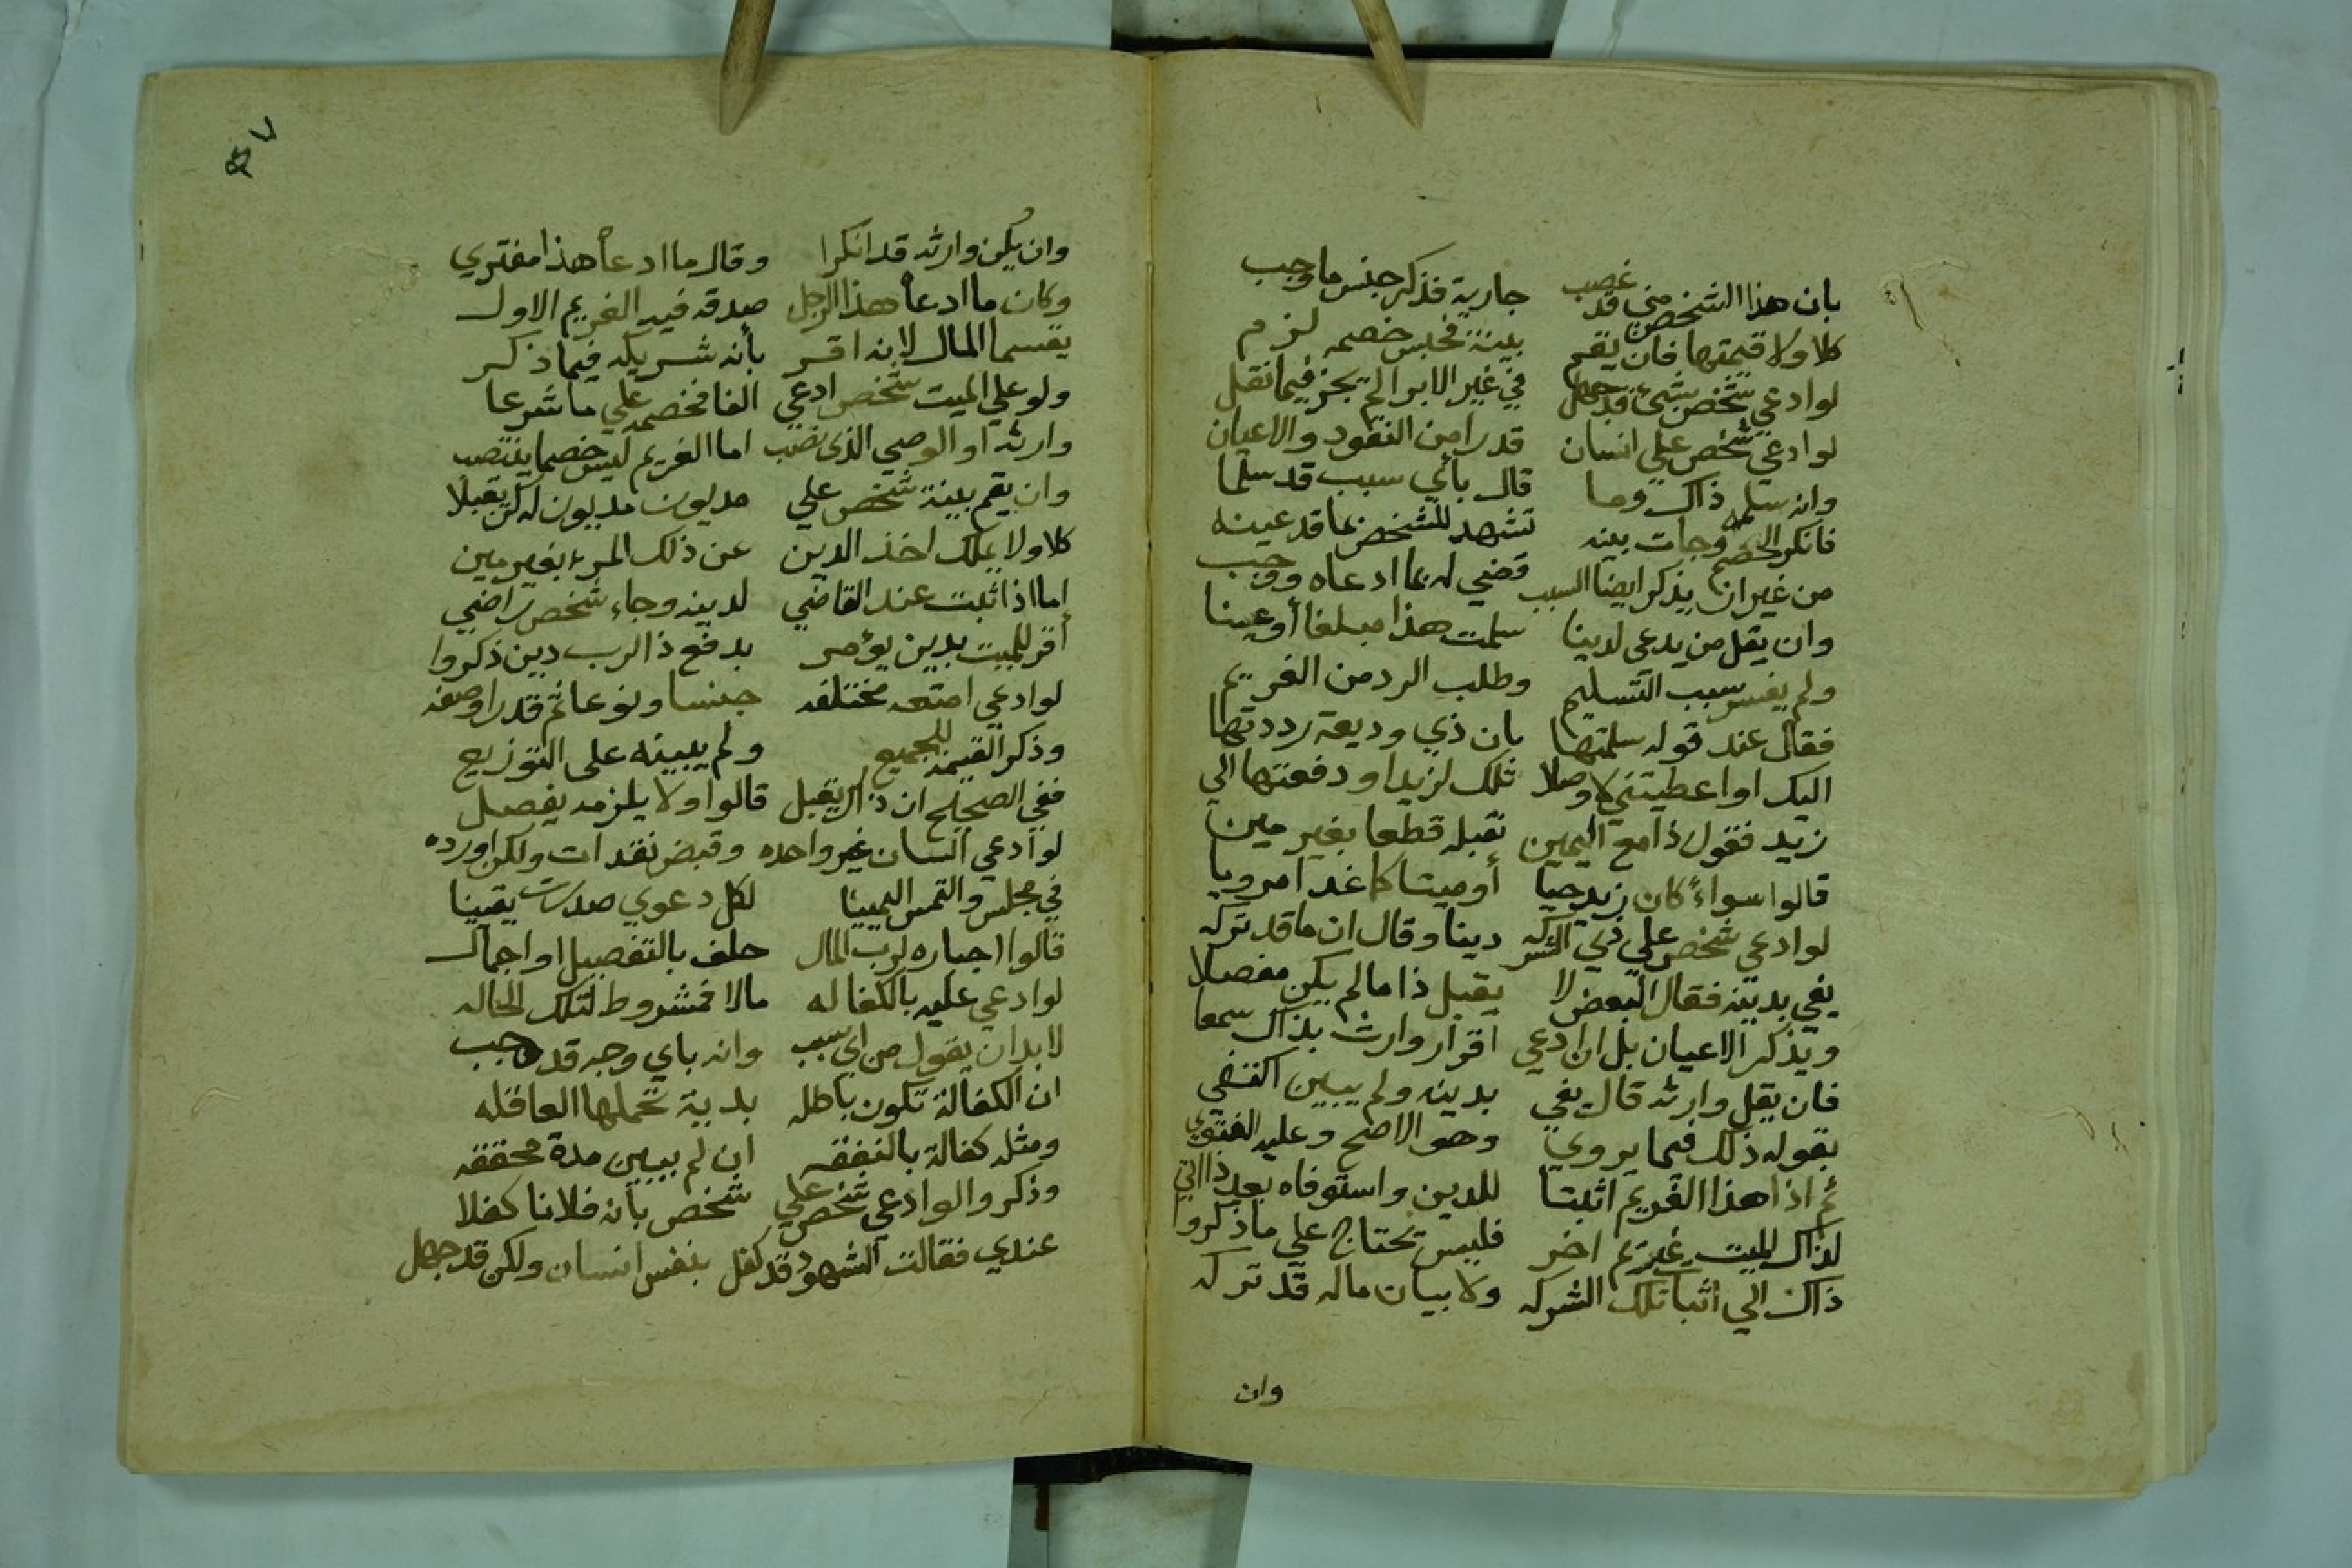 بان هذا الشخص مني قد غصب جارية فذكر جنس ما وجب
كلا ولا قيمتها فان يقم بينة فحبس خصمه لزم
لو ادعي شخص بشيء قد جهل في غير الابرا لم يجز فيما نقل
لو ادعي شخص علي انسان قدرا من النقود والاعيان
وانه سلم ذاك وما قال بأي سبب قد سلما
فانكر الخصم وجات بينه تشهد للشخص بما قد عينه
من غير ان يذكر ايضا السبب قضي له بما ادعاه ووجب
وان يقل من يدعى لدينا سلمت هذا مبلغا أو عينا
ولم يفسر سبب التسليم وطلب الرد من الغريم
فقال عند قوله سلمتها بان ذي وديعة رددتها
اليك او اعطيتني كلا وصلا تلك لزيد او دفعتها الي
زيد فقول ذا مع اليمين نقبله قطعا بغير مين
قالوا سواءً كان زيد حيا أو ميتا كما غدا مرويا
لو ادعي شخص علي ذي التركه دينا وقال ان ما قد تركه
يفي بدينه فقال البعض لا يقبل ذا ما لم يكن مفصلا
ويذكر الاعيان بل ان ادعي اقرار وارث بذاك سمعا
فان يقل وارثه قال يفي بدينه ولم يبين اكتفي
بقوله ذلك فيما يروي وهو الاصح وعليه الفتوي
ثم اذا هذا الغريم اثبتا للدين واستوفاه بعد ذا اتي
لذاك الميت غريم اخر فليس يحتاج علي ما ذكروا
ذاك الي اثبات تلك التركه ولا بيان ماله قد تركه
وان
٥٧
وان يكن وارثه قد انكرا وقال ما ادعاه هذا مفتري
وكان ما ادعاه هذا الرجل صدقه فيه الغريم الاول
يقسما المال لانه اقر بأنه شريكه فيما ذكر
ولو علي الميت شخص ادعي الفا فخصمه علي ما شرعا
وارثه او الوصي الذى نصب اما الغريم ليس خصما ينتصب
وان يقم بينة شخص علي مديون مديون له لن يقبلا
كلا ولا يملك اخذ الدين عن ذلك المرء بغير مين
اما اذا ثبت عند القاضي لدينه وجاء شخص راضي
أقر للميت بدين يؤمر بدفع ذا لرب دين ذكروا
لو ادعي امتعه مختلفه جنسا ونوعا ثم قدرا وصفه
وذكر القيمة للجميع ولم يبينه على التوزيع
ففي الصحيح ان ذاك يقبل قالوا ولا يلزمه يفصل
لو ادعي انسان غير واحده وقبض نقدات ولكن اورده
في مجلس والتمس اليمينا لكل دعوي صدرت يقينا
قالوا اجباره لرب المال حلف بالتفصيل او اجمال
لو ادعي عليه بالكفاله مالا فمشروط لتلك الحاله
لا بد ان يقول من اى سبب وانه باي وجه قد وجب
ان الكفالة تكون باطله بدية تحملها العاقله
ومثله كفالة بالنفقه ان لم يبين مدة محققه
وذكروا لو ادعي شخص علي شخص بأنه فلانا كفلا
عندي فقالت الشهود قد كفل بنفس انسان ولكن قد جهل